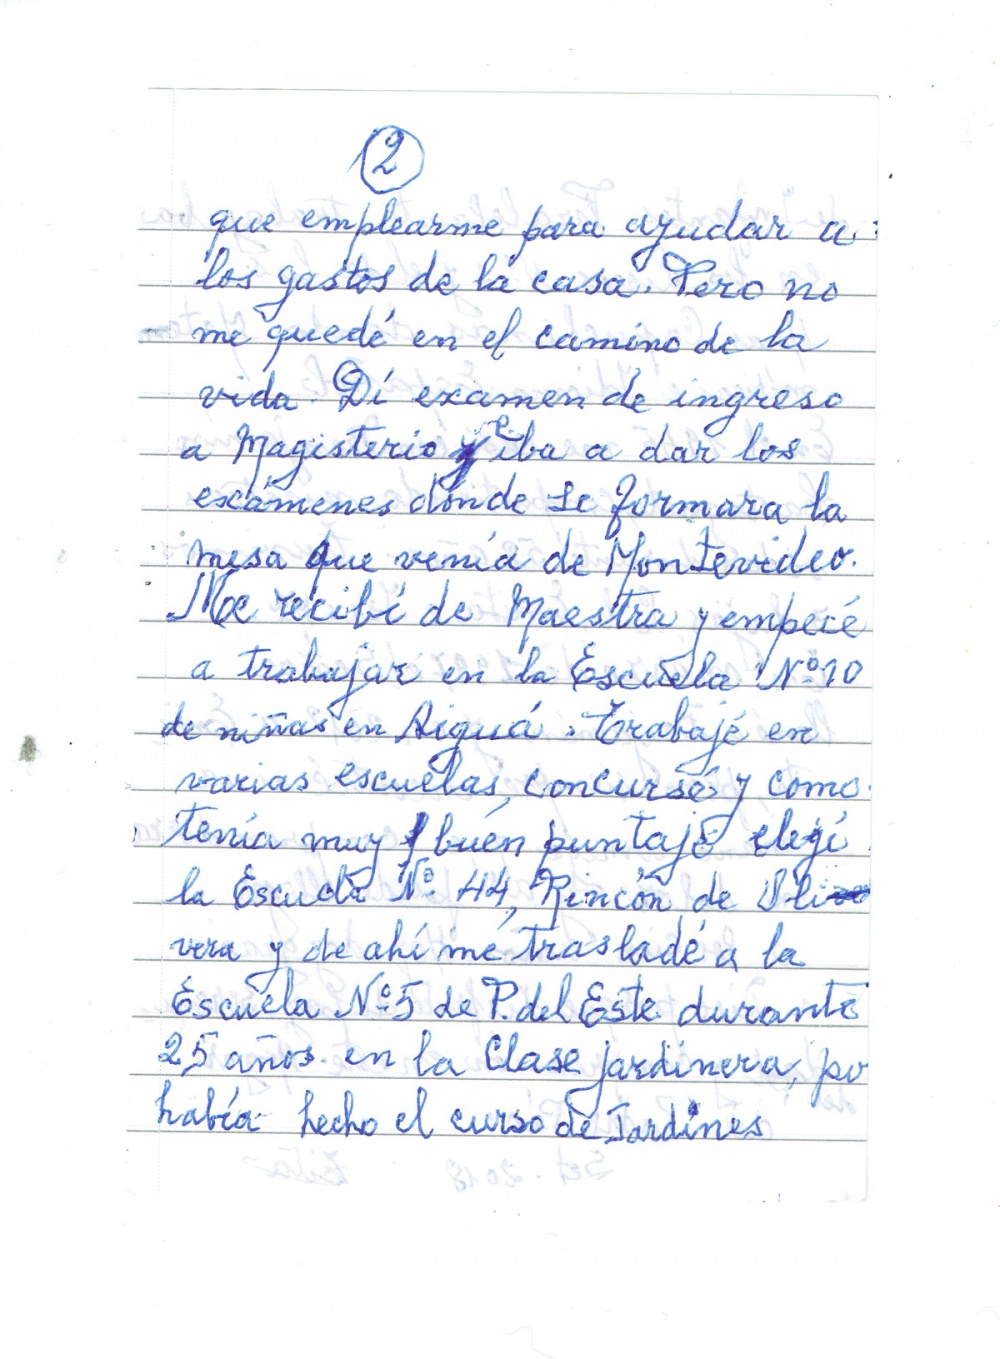 2
que emplearme para ayudar a
los gastos de la casa. Pero no
me quedé en el camino de la
vida. Dí examen de ingreso
a Magisterio y e iba a dar los
exámenes dónde se formara la
mesa que venía de Montevideo.
Me recibí de Maestra y empecé
a trabajar en la Escuela Nº 10
de niñas en Aiguá. Trabajé en
varias escuelas, concursé y como
tenía muy buén puntaje elegí
la Escuela Nº 44, Rincón de Oli
vera y de ahí me trasladé a la
Escuela Nº 5 de P. del Este durante
25 años en la Clase jardinera, po
había hecho el curso de Jardines
Set. 2018